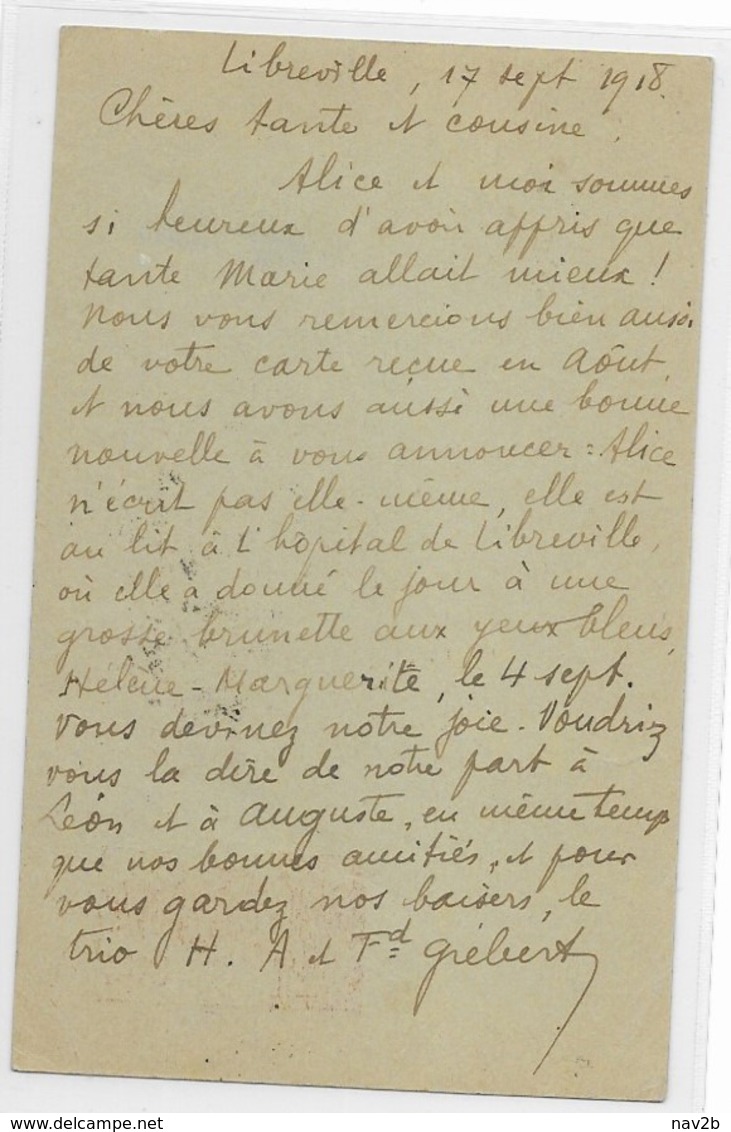 Libreville, 17 sept 1918.
Chères tante et cousine,
Alice et moi sommes
si heureux d'avoir appris que
tante Marie allait mieux!
Nous vous remercions bien aussi
de votre carte reçue en Aôut,
et nous avons aussi une bonne
nouvelle à vous annoncer : Alice
n'écrit pas elle-même, elle est
au lit à l'hôpital de Libreville,
où elle a donné le jour à une
grosse brunette aux yeux bleus,
Hélène-Marguerite, le 4 sept.
Vous devinez notre joie. Voudriez
vous la dire de notre part à
Léon et à Auguste, en même temps
que nos bonnes amitiés, et pour
vous gardez nos baisers, le
trio H. A et Fd Grébert
delcampe.net
nav2b